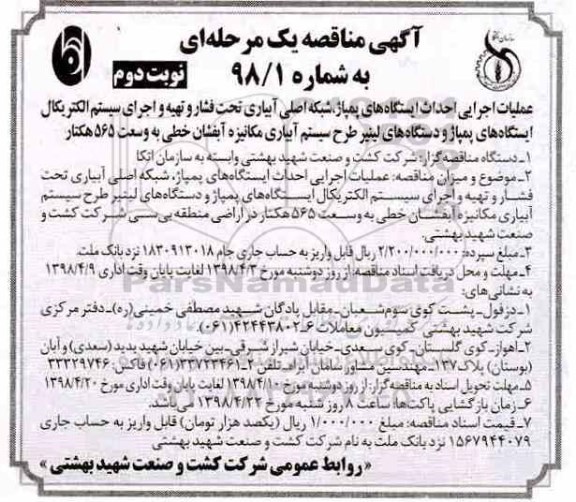 آگهی مناقصه یک مرحله‌ای
به شماره ۹۸/۱
نوبت دوم
عملیات اجرایی احداث ایستگاه‌های پمپاژ،شبکه اصلی آبیاری تحت فشار و تهیه و اجرای سیستم الکتریکال
ایستگاه‌های پمپاژ و دستگاه‌های لینیر طرح سیستم آبیاری مکانیزه آبفشان خطی به وسعت ۵۶۵ هکتار
۱ـ دستگاه مناقصه‌گزار: شرکت کشت و صنعت شهید بهشتی وابسته به سازمان اتکا
۲ـ موضوع و میزان مناقصه: عملیات اجرایی احداث ایستگاه‌های پمپاژ، شبکه اصلی آبیاری تحت
فشار و تهیه و اجرای سیستم الکتریکال ایستگاه‌های پمپاژ و دستگاه‌های لینیر طرح سیستم
آبیاری مکانیزه آبفشان خطی به وسعت ۵۶۵ هکتار در اراضی منطقه بی‌سی شرکت کشت و
صنعت شهید بهشتی.
۳ـ مبلغ سپرده: ۲/۲۰۰/۰۰۰/۰۰۰ ریال قابل واریز به حساب جاری جام ۱۸۳۰۹۱۳۰۱۸ نزد بانک ملت.
۴ـ مهلت و محل دریافت اسناد مناقصه: از روز دوشنبه مورخ ۱۳۹۸/۴/۳ لغایت پایان وقت اداری ۱۳۹۸/۴/۹
به نشانی‌های:
۱ـ دزفول ـ پشت کوی سوم شعبان ـ مقابل پادگان شهید مصطفی خمینی(ره) ـ دفتر مرکزی
شرکت شهید بهشتی ـ کمیسیون معاملات ۶ـ۴۲۴۴۳۸۰۲(۰۶۱)
۲ـ اهواز ـ کوی گلستان ـ کوی سعدی ـ خیابان شیراز شرقی ـ بین خیابان شهید پدید (سعدی) و آبان
(بوستان) پلاک ۱۳۷ ـ مهندسین مشاور سامان آبراه ـ تلفن ۲ـ۳۳۷۲۳۴۶۱(۰۶۱) فاکس: ۳۳۳۲۹۷۴۶
۵ـ مهلت تحویل اسناد به مناقصه‌گزار: از روز دوشنبه مورخ ۱۳۹۸/۴/۱۰ لغایت پایان وقت اداری مورخ ۱۳۹۸/۴/۲۰
۶ـ زمان بازگشایی پاکت‌ها: ساعت ۸ روز شنبه مورخ ۱۳۹۸/۴/۲۲ می‌باشد.
۷ـ قیمت اسناد مناقصه: مبلغ ۱/۰۰۰/۰۰۰ ریال (یکصد هزار تومان) قابل واریز به حساب جاری
۱۵۶۷۹۴۴۰۷۹ نزد بانک ملت به نام شرکت کشت و صنعت شهید بهشتی
«روابط عمومی شرکت کشت و صنعت شهید بهشتی»
ParsNamadData